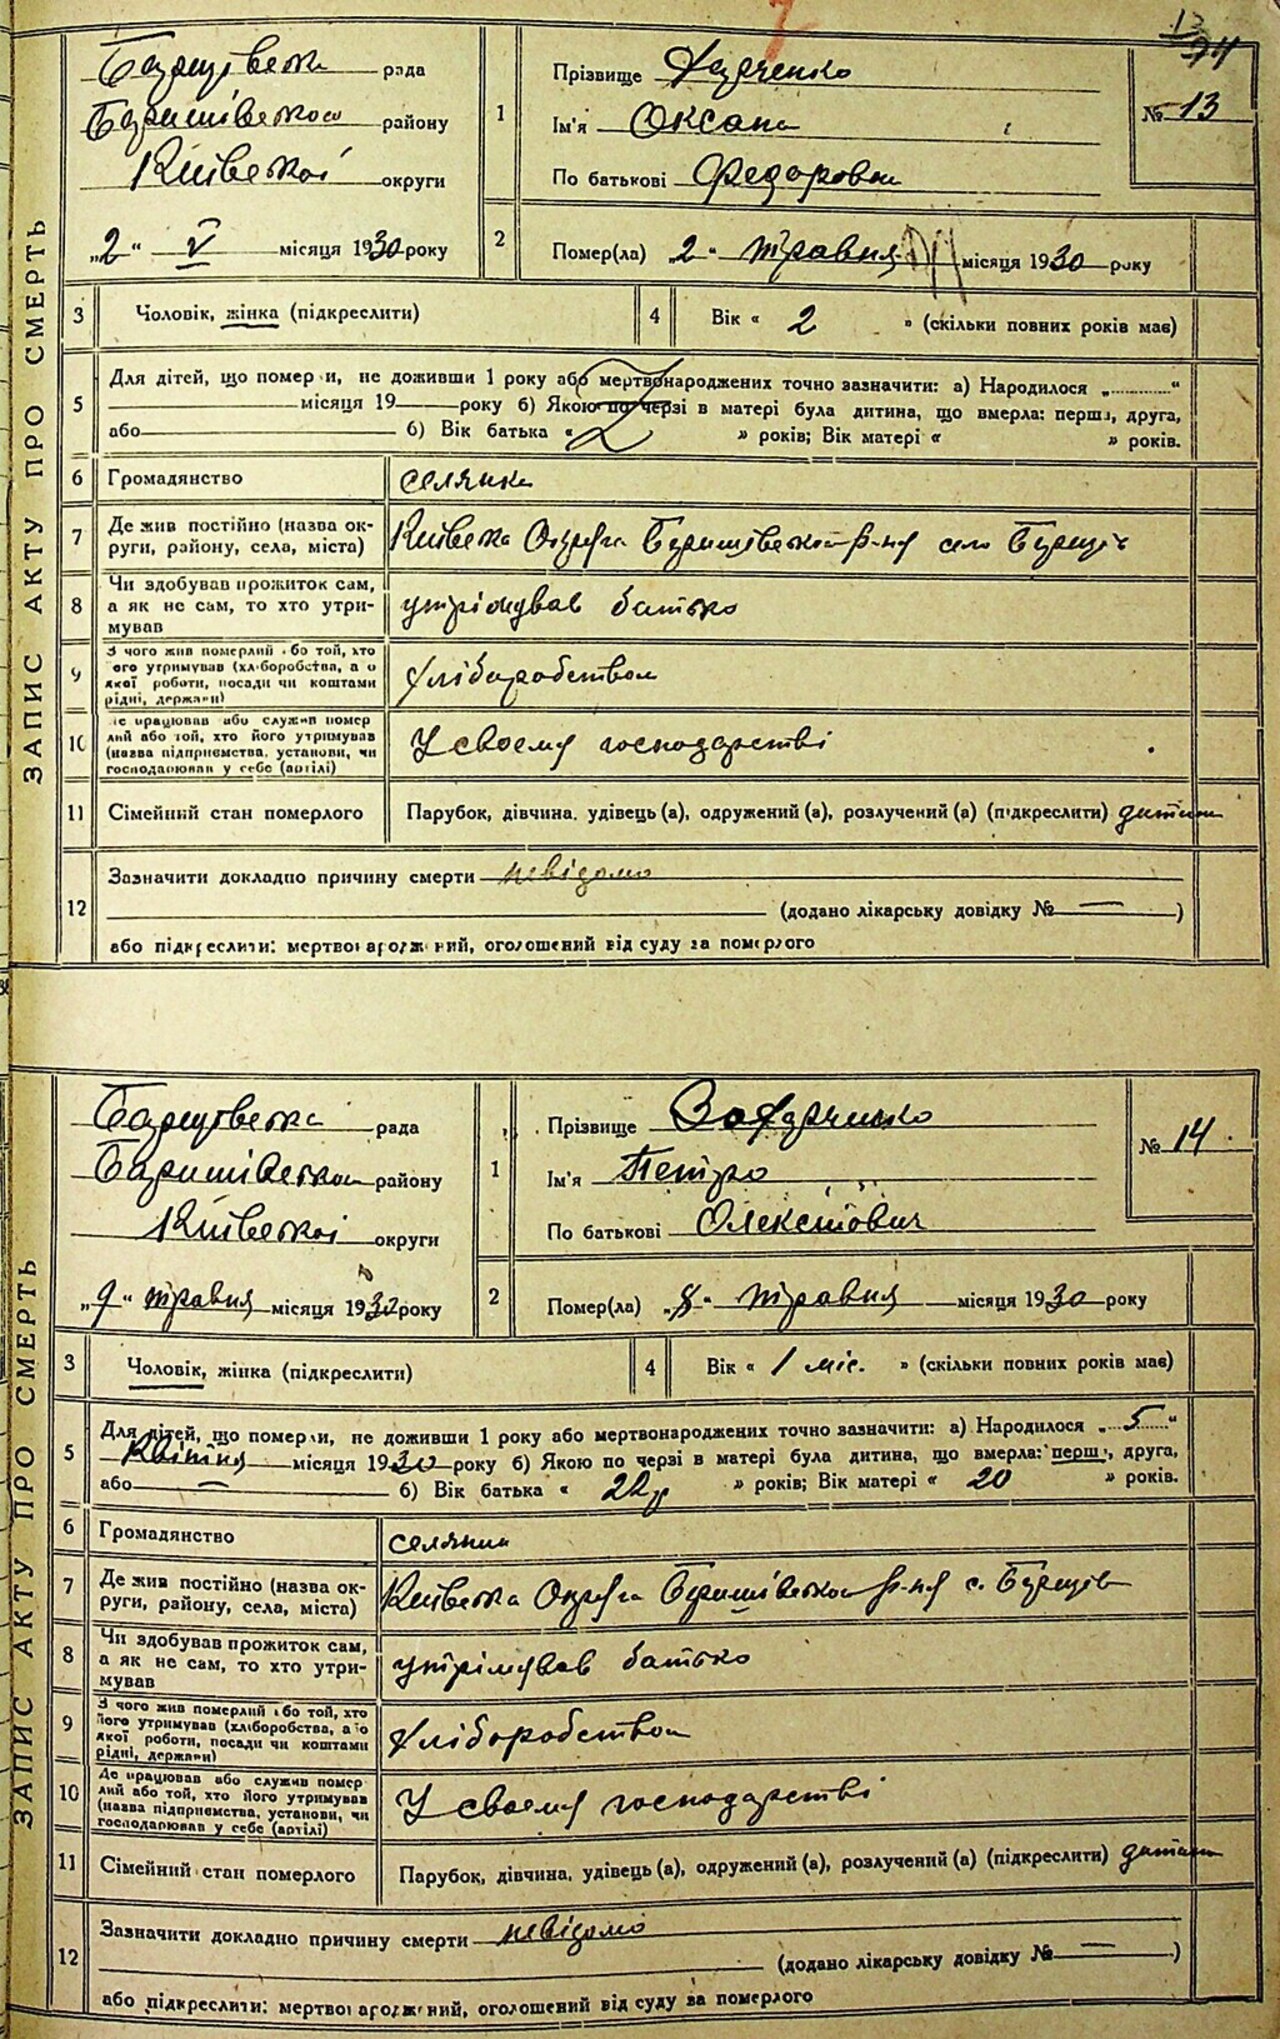 13
74
ЗАПИС АКТУ ПРО СМЕРТЬ
рада
Баришівської району
Київської округи
„2“ V місяця 1930 року
1
Прізвище
Ім'я Оксана
По батькові Федоровна
№ 13
2
Помер(ла) „2“ травня місяця 1930 року
3
Чоловік, жінка (підкреслити)
4
Вік « 2 » (скільки повних років має)
5
Для дітей, що померли, не доживши 1 року або мертвонароджених точно зазначити: а) Народилося „ “
місяця 19 року б) Якою по черзі в матері була дитина, що вмерла: перша, друга,
або б) Вік батька « » років; Вік матері « » років.
6
Громадянство
селянка
7
Де жив постійно (назва ок-
руги, району, села, міста)
Київська Округа Баришівського р-ня село
8
Чи здобував прожиток сам,
а як не сам, то хто утри-
мував
утрімував батько
9
З чого жив померлий або той, хто
його утримував (хліборобства, а о
якої роботи, посади чи коштами
рідні, держави)
хліборобством
10
Де працював або служив помер
лий або той, хто його утримував
(назва підприємства, установи, чи
господарював у себе (артілі)
У своему господарстві
11
Сімейний стан померлого
Парубок, дівчина, удівець (а), одружений (а), розлучений (а) (підкреслити) дитина
12
Зазначити докладно причину смерти невідомо
(додано лікарську довідку № — )
або підкреслити: мертвонароджений, оголошений від суду за померлого
ЗАПИС АКТУ ПРО СМЕРТЬ
рада
Баришівської району
Київської округи
„9“ травня місяця 1930 року
1
Прізвище
Ім'я Петро
По батькові Олексієвич
№ 14
2
Помер(ла) „8“ травня місяця 1930 року
3
Чоловік, жінка (підкреслити)
4
Вік « 1 міс. » (скільки повних років має)
5
Для дітей, що померли, не доживши 1 року або мертвонароджених точно зазначити: а) Народилося „5“
Квітня місяця 1930 року б) Якою по черзі в матері була дитина, що вмерла: перша, друга,
або — б) Вік батька « 22 р » років; Вік матері « 20 » років.
6
Громадянство
селянин
7
Де жив постійно (назва ок-
руги, району, села, міста)
Київська Округа Баришівського р-ня с.
8
Чи здобував прожиток сам,
а як не сам, то хто утри-
мував
утрімував батько
9
З чого жив померлий або той, хто
його утримував (хліборобства, а о
якої роботи, посади чи коштами
рідні, держави)
хліборобством
10
Де працював або служив помер
лий або той, хто його утримував
(назва підприємства, установи, чи
господарював у себе (артілі)
У своему господарстві
11
Сімейний стан померлого
Парубок, дівчина, удівець (а), одружений (а), розлучений (а) (підкреслити) дитина
12
Зазначити докладно причину смерти невідомо
(додано лікарську довідку № — )
або підкреслити: мертвонароджений, оголошений від суду за померлого